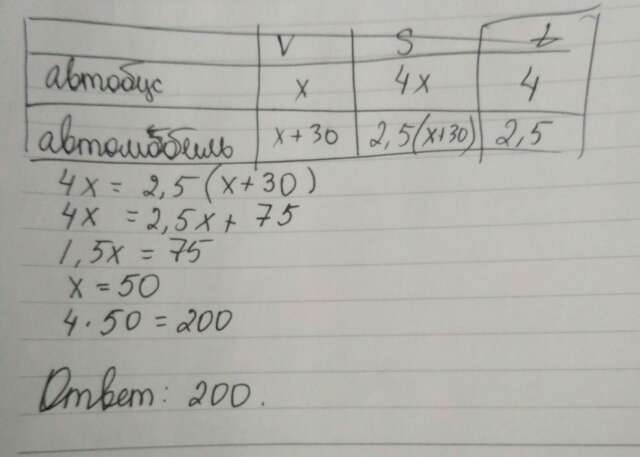 V S t
автобус x 4x 4
автомобиль x+30 2,5(x+30) 2,5
4x = 2,5(x+30)
4x = 2,5x + 75
1,5x = 75
x = 50
4 · 50 = 200
Ответ: 200.